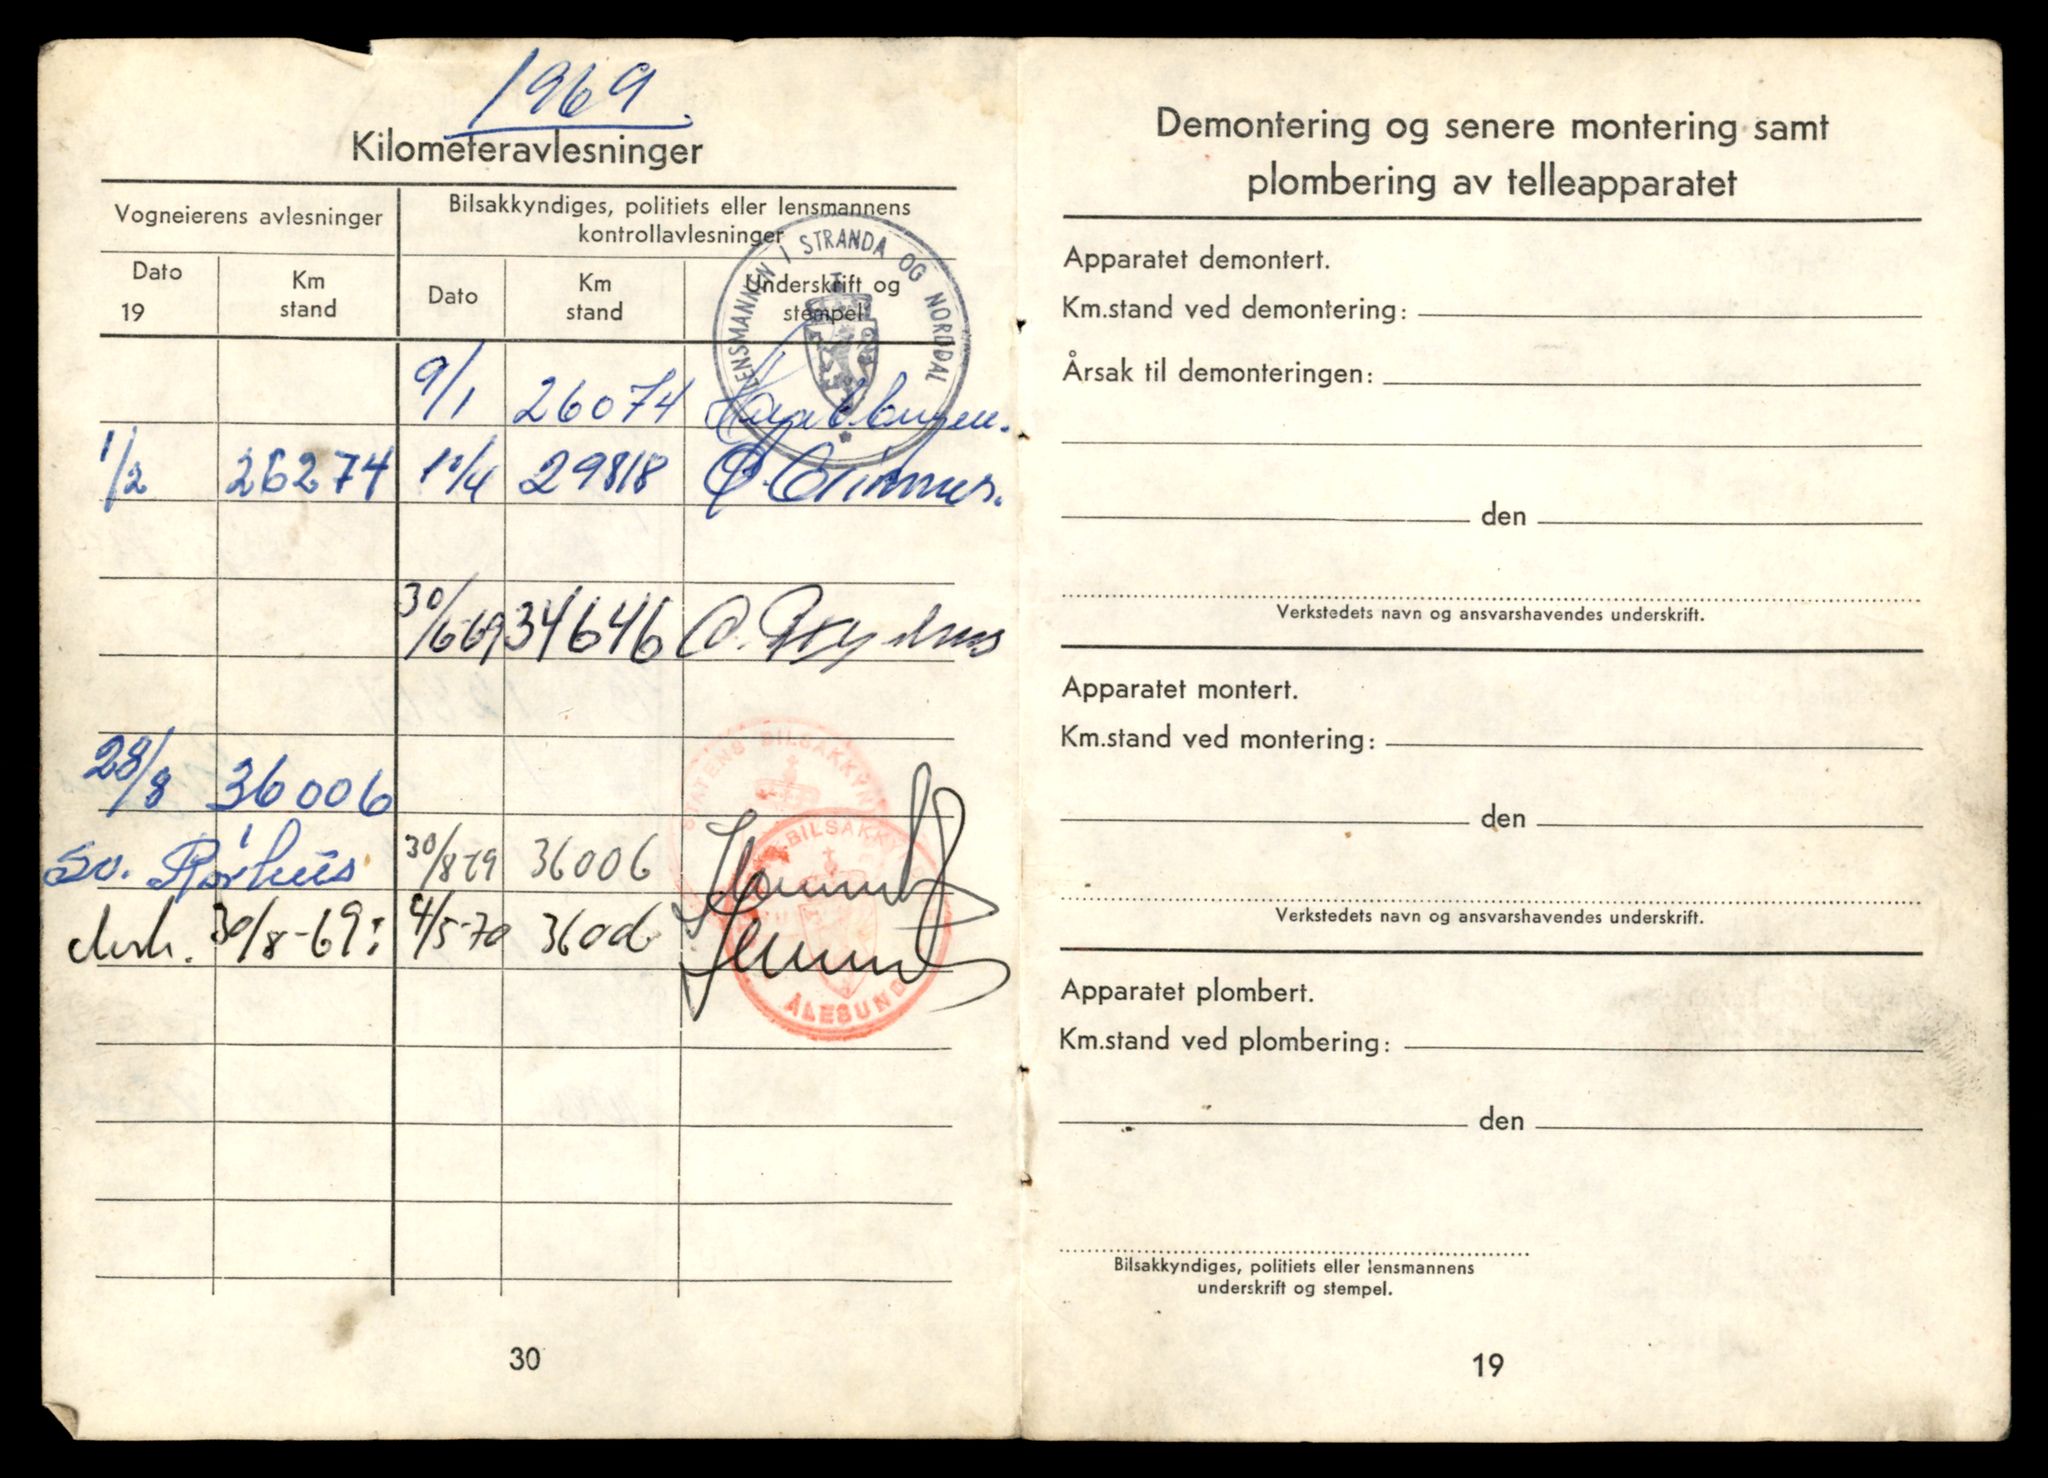 1969
Kilometeravlesninger
Vogneierens avlesninger
Bilsakkyndiges, politiets eller lensmannens
kontrollavlesninger
Dato
19
Km
stand
Dato
Km
stand
Underskrift og
stempel
LENSMANNEN I STRANDA OG NORDDAL
9/1 26074
1/2 26274 10/4 29818
30/6-69 34646 O.
28/8 36006
30/8-69 36006
30/8-69: 4/5-70 36006
STATENS BILSAKKYN
BILSAKKY
ÅLESUND
30
Demontering og senere montering samt
plombering av telleapparatet
Apparatet demontert.
Km.stand ved demontering:
Årsak til demonteringen:
den
Verkstedets navn og ansvarshavendes underskrift.
Apparatet montert.
Km.stand ved montering:
den
Verkstedets navn og ansvarshavendes underskrift.
Apparatet plombert.
Km.stand ved plombering:
den
Bilsakkyndiges, politiets eller lensmannens
underskrift og stempel.
19